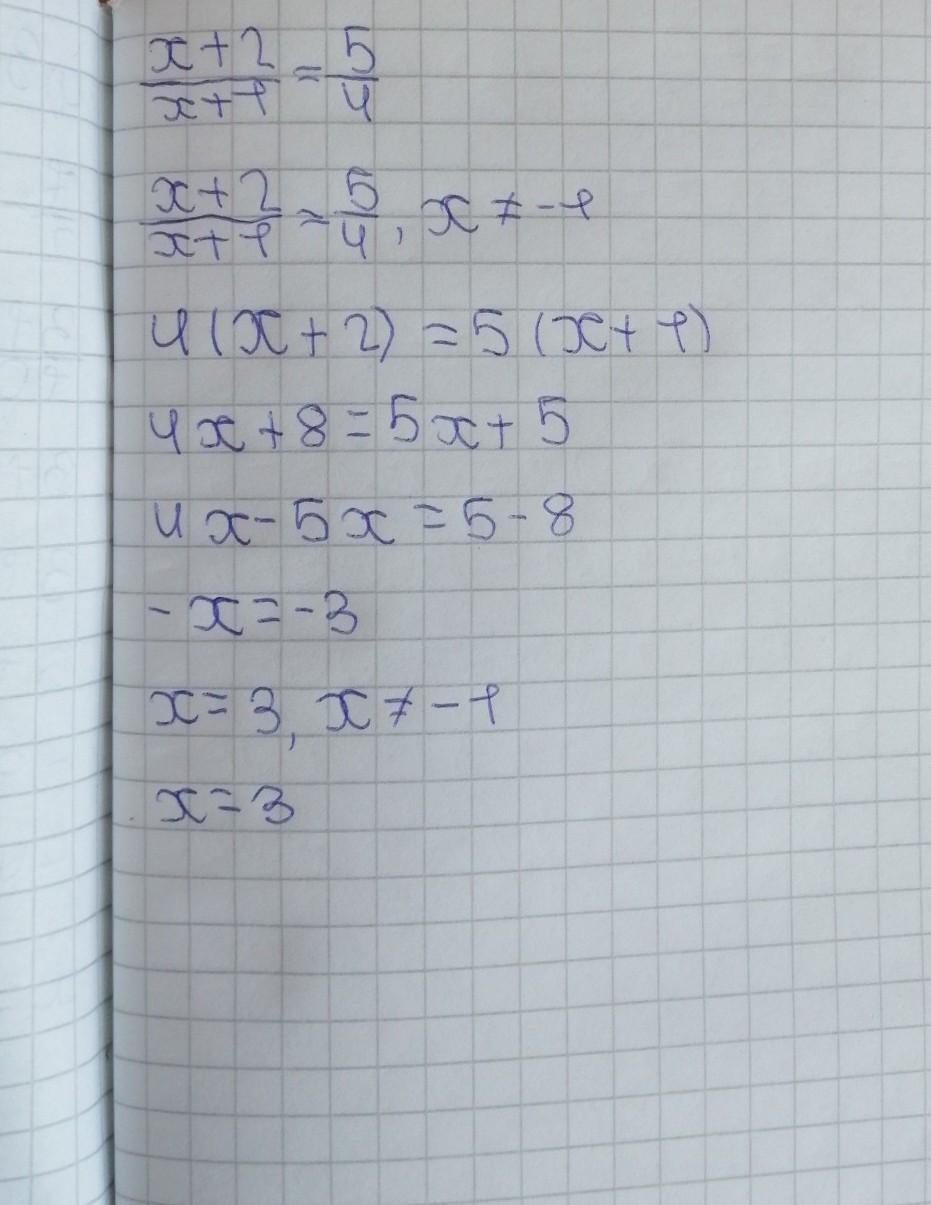 (x+2)/(x+1) = 5/4
(x+2)/(x+1) = 5/4, x ≠ -1
4(x+2) = 5(x+1)
4x+8=5x+5
4x-5x=5-8
-x=-3
x=3, x≠-1
x=3